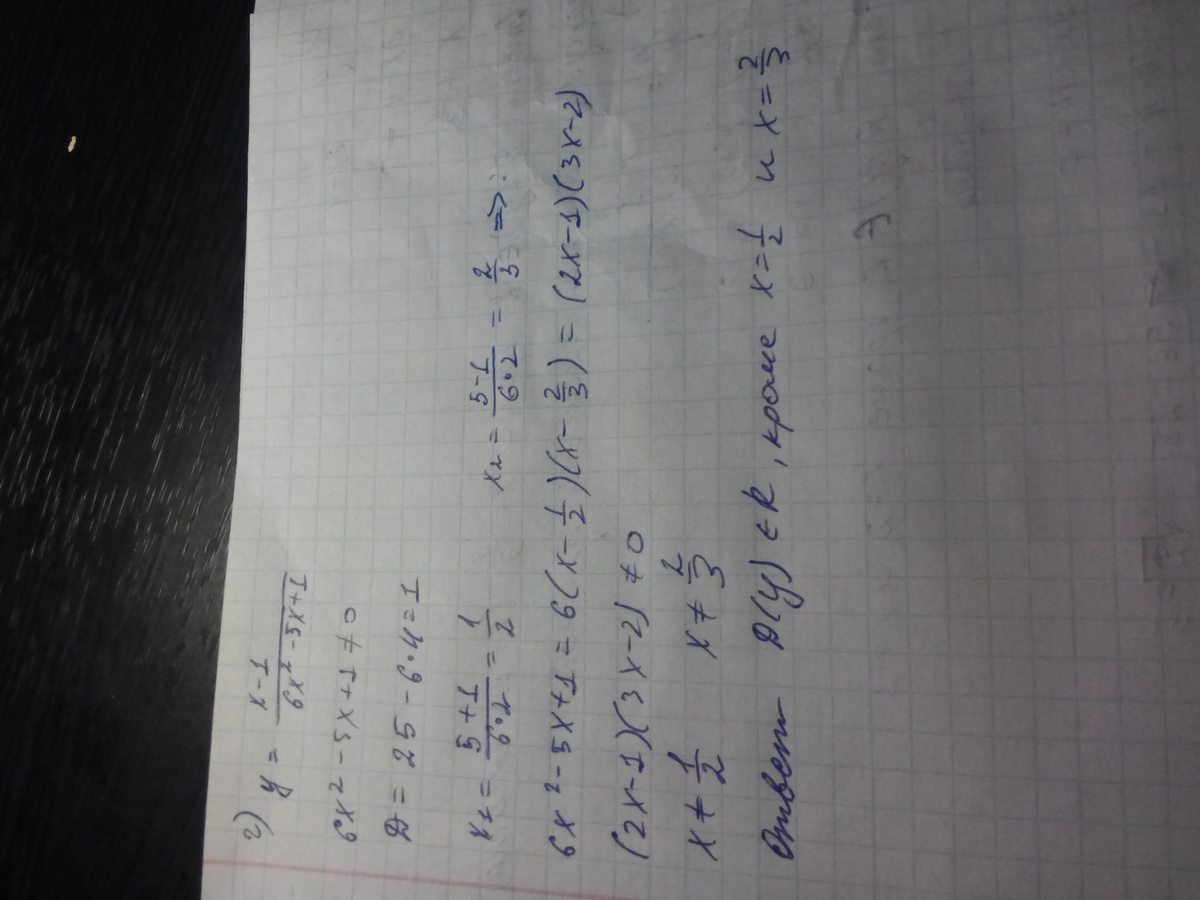 г) y = (x-1)/(6x²-5x+1)
6x²-5x+1≠0
D = 25-6·4=1
x₁ = (5+1)/(6·2) = 1/2 x₂ = (5-1)/(6·2) = 2/3 =>
6x²-5x+1 = 6(x-1/2)(x-2/3) = (2x-1)(3x-2)
(2x-1)(3x-2) ≠ 0
x ≠ 1/2 x ≠ 2/3
Ответ D(y) ∈ R, кроме x=1/2 и x=2/3